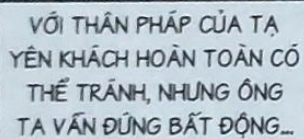 VỚI THÂN PHÁP CỦA TẠ
YÊN KHÁCH HOÀN TOÀN CÓ
THỂ TRÁNH, NHƯNG ÔNG
TA VẪN ĐỨNG BẤT ĐỘNG...